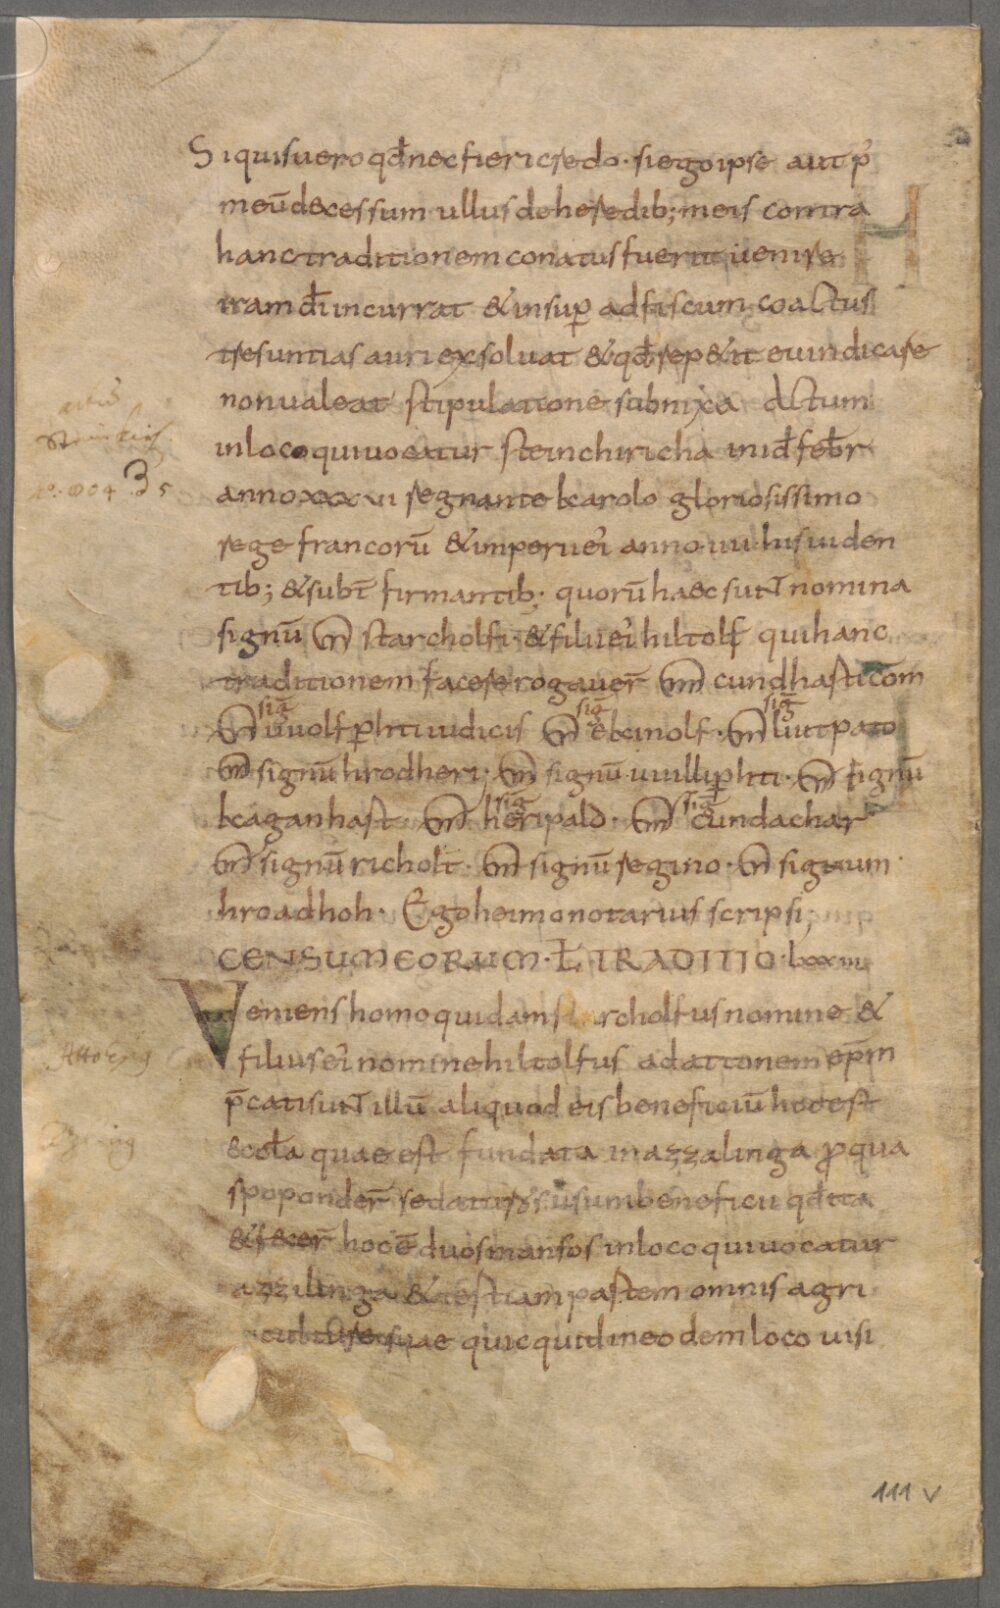 Si quis uero qđ nec fieri credo · si ego ipse aut p̄
meū decessum ullus de heredib; meis contra
hanc traditionem conatus fuerit uenire
iram dī incurrat & insup ad fiscum coactus
tres untias auri exsoluat & qđ rep&it euindicare
non ualeat stipulatione subnixa actum
in loco qui uocatur steinchiricha in iđ febr̄
anno xxxvi regnante karolo gloriosissimo
rege francorū & imperii ei anno iiii his uiden
tib; & subt firmantib; quorū haec sunt nomina
signū starcholfi & filii ei hiltolf qui hanc
traditionem facere rogauer̄ cundhart com
sig uuolfperhti iudicis sig ekinolf · sig liutpato
signū hrodheri; signū uuilliphti · signū
kaganhart · sig heripald · sig cundachar
signū richolt · signū regino · signum
hroadhoh · Ego heimo notarius scripsi;
CENSUM EORUM · Ł TRADITIO · lxxiii
Veniens homo quidam starcholfus nomine &
filius ei nomine hiltolfus ad attonem ep̄m
p̄cati sunt illū aliquod eis beneficiū hoc est
eccła quae est fundata in azzalinga pro qua
sponponder̄ se daturos suum beneficiū qđ ita
& fecer̄ hoc ē duos mansos in loco qui uocatur
azzilinga & tertiam partem omnis agri
culturae suae quicquid in eodem loco uisi
Attonis
111 v